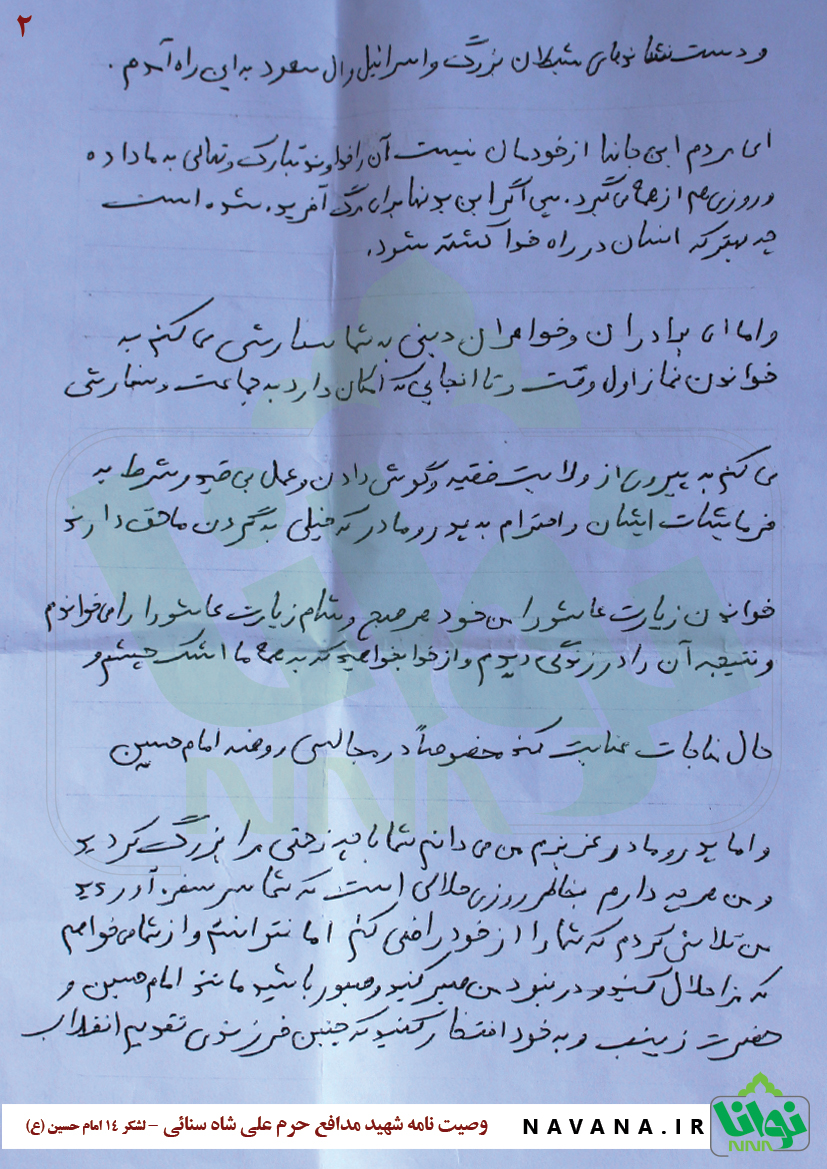 ۲
و دست نشانده‌های شیطان بزرگ و اسرائیل و آل سعود به این راه آمدم.
ای مردم این جانها از خودمان نیست آن را خداوند تبارک و تعالی به ما داده
و روزی هم از همه می گیرد. پس اگر این بدنها برای مرگ آفریده شده است
چه بهتر که انسان در راه خدا کشته شود.
و اما ای برادران و خواهران دینی به شما سفارش می کنم به
خواندن نماز اول وقت و تا آنجایی که امکان دارد به جماعت و سفارش
می کنم به پیروی از ولایت فقیه و گوش دادن و عمل بی قید و شرط به
فرمایشات ایشان و احترام به پدر و مادر که خیلی به گردن ما حق دارند
خواندن زیارت عاشورا من خود هر صبح و شام زیارت عاشورا را می خواندم
و نتیجه آن را در زندگی دیدم و از خدا بخواهید که به همه ما اشک چشم و
حال مناجات عنایت کند مخصوصاً در مجالس روضه امام حسین
و اما پدر و مادر عزیزم من می دانم شما با چه زحمتی مرا بزرگ کردید
و من هر چه دارم بخاطر روزی حلالی است که شما سر سفره آوردید
من تلاش کردم که شما را از خود راضی کنم اما نتوانستم و از شما می خواهم
که مرا حلال کنید و در نبود من صبر کنید و صبور باشید مانند امام حسین و
حضرت زینب و به خود افتخار کنید که چنین فرزندی تقدیم انقلاب
نوانا
NNNN
وصیت نامه شهید مدافع حرم علی شاه سنائی – لشکر ۱۴ امام حسین (ع)
NAVANA.IR
نوانا
NNNN